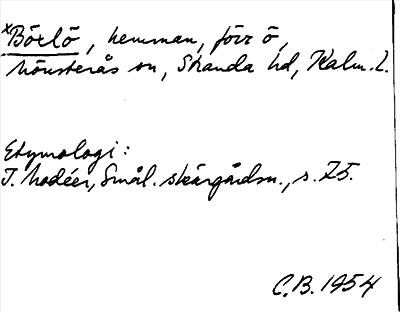 *Börlö, hemman, förr ö,
Mönsterås sn, Stranda hd, Kalm. l.
Etymologi:
I. Modéer, Smål. skärgårdsn., s. 75.
C.B. 1954